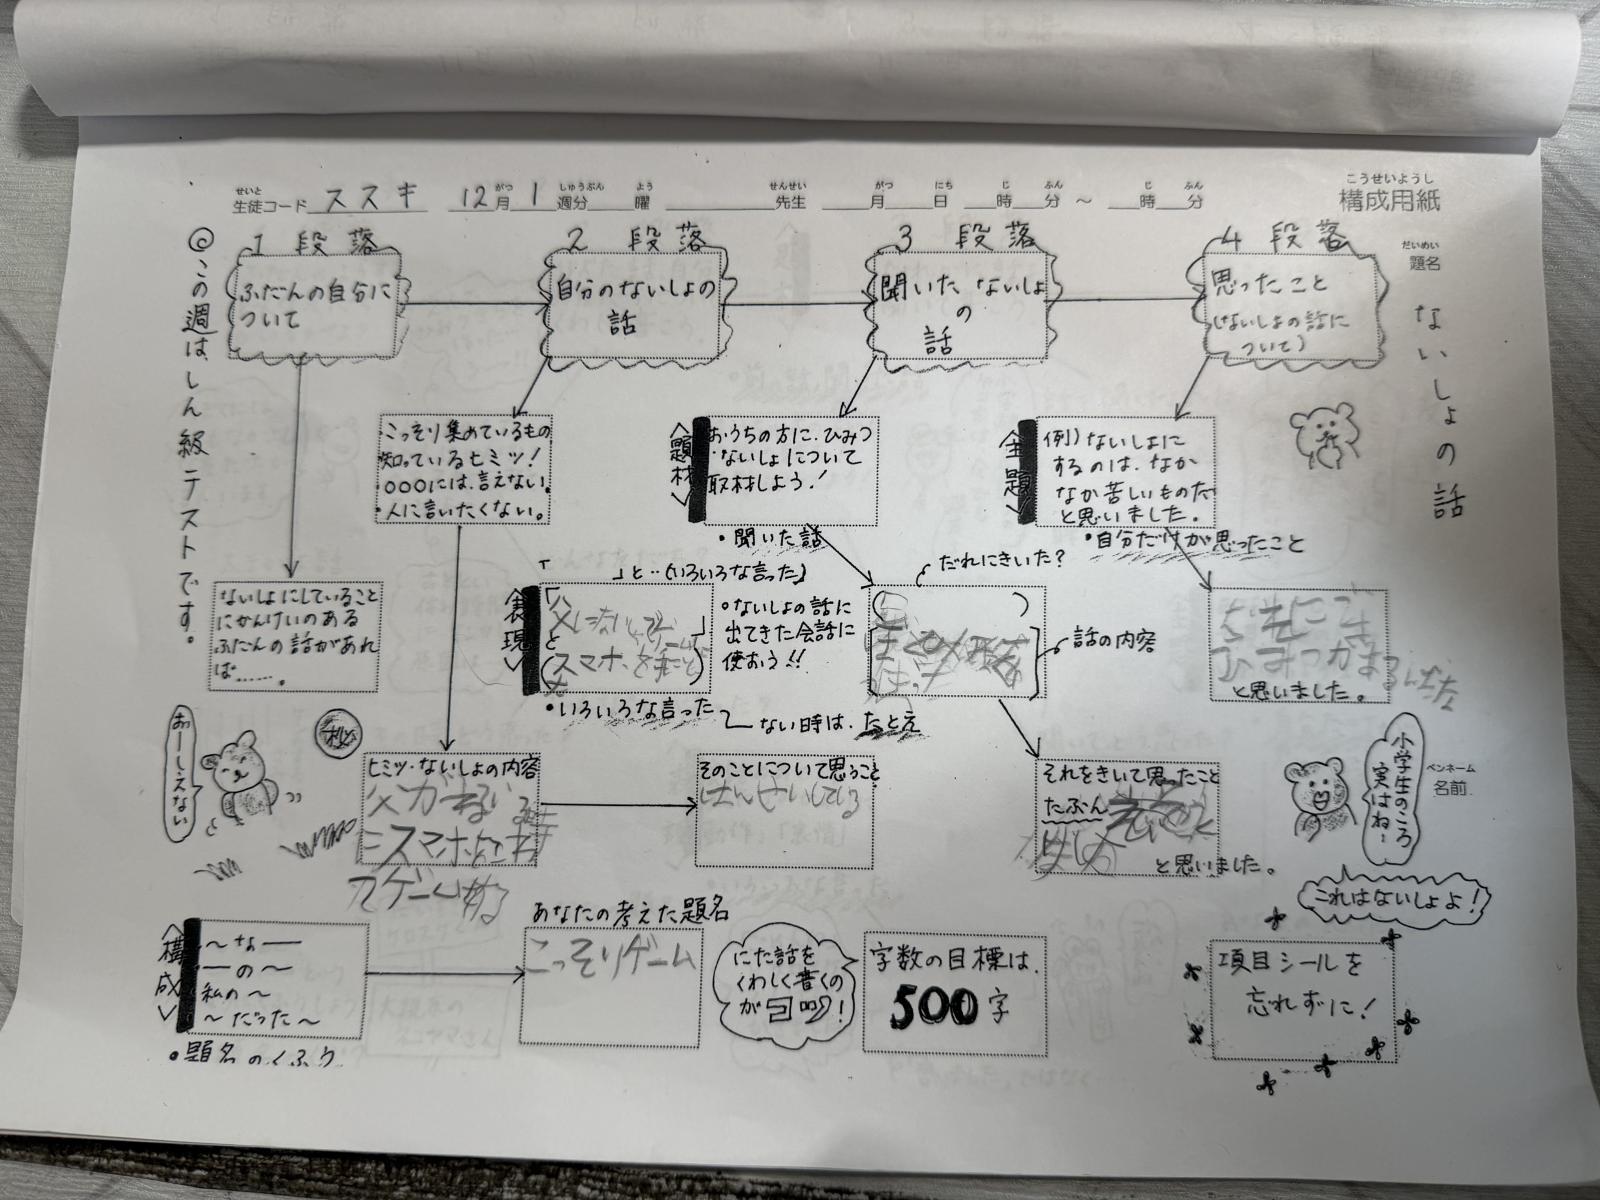 せいと
生徒コード ススキ
12月 1週分 曜
がつ しゅうぶん よう
せんせい
先生
がつ にち じ ふん じ ふん
月 日 時 分 ～ 時 分
こうせいようし
構成用紙
だいめい
題名
ないしょの話
◎この週は、しん級テストです。
1 段落
ふだんの自分に
ついて
2 段落
自分のないしょの
話
3 段落
聞いたないしょ
の
話
4 段落
思ったこと
(ないしょの話に
ついて)
・こっそり集めているもの
知っているヒミツ!
・○○○には、言えない。
・人に言いたくない。
〈題材〉
おうちの方に、ひみつ
・ないしょについて
取材しよう!
・聞いた話
〈主題〉
例)ないしょに
するのは、なか
なか苦しいものだ
と思いました。
・自分だけが思ったこと
ないしょにしていること
にかんけいのある
ふだんの話があれ
ば……。
「 」と‥(いろいろな言った)
〈表現〉
父にないしょで
ゲーム」
と
スマホを
・いろいろな言った
ない時は、たとえ
○ないしょの話に
出てきた会話に
使おう!!
だれにきいた?
話の内容
だれにでも
ひみつがある
と思いました。
おーしえない
秘
ヒミツ・ないしょの内容
父がねている
スマホを
ゲームする
そのことについて思うこと
はんせいしている
それをきいて思ったこと
たぶん
と思いました。
小学生のころ
実はね〜
これはないしょよ!
ペンネーム
名前
〈構成〉
〜な―
―の〜
私の〜
〜だった〜
・題名のくふう
あなたの考えた題名
こっそりゲーム
にた話を
くわしく書くの
が
字数の目標は、
500字
項目シールを
忘れずに!